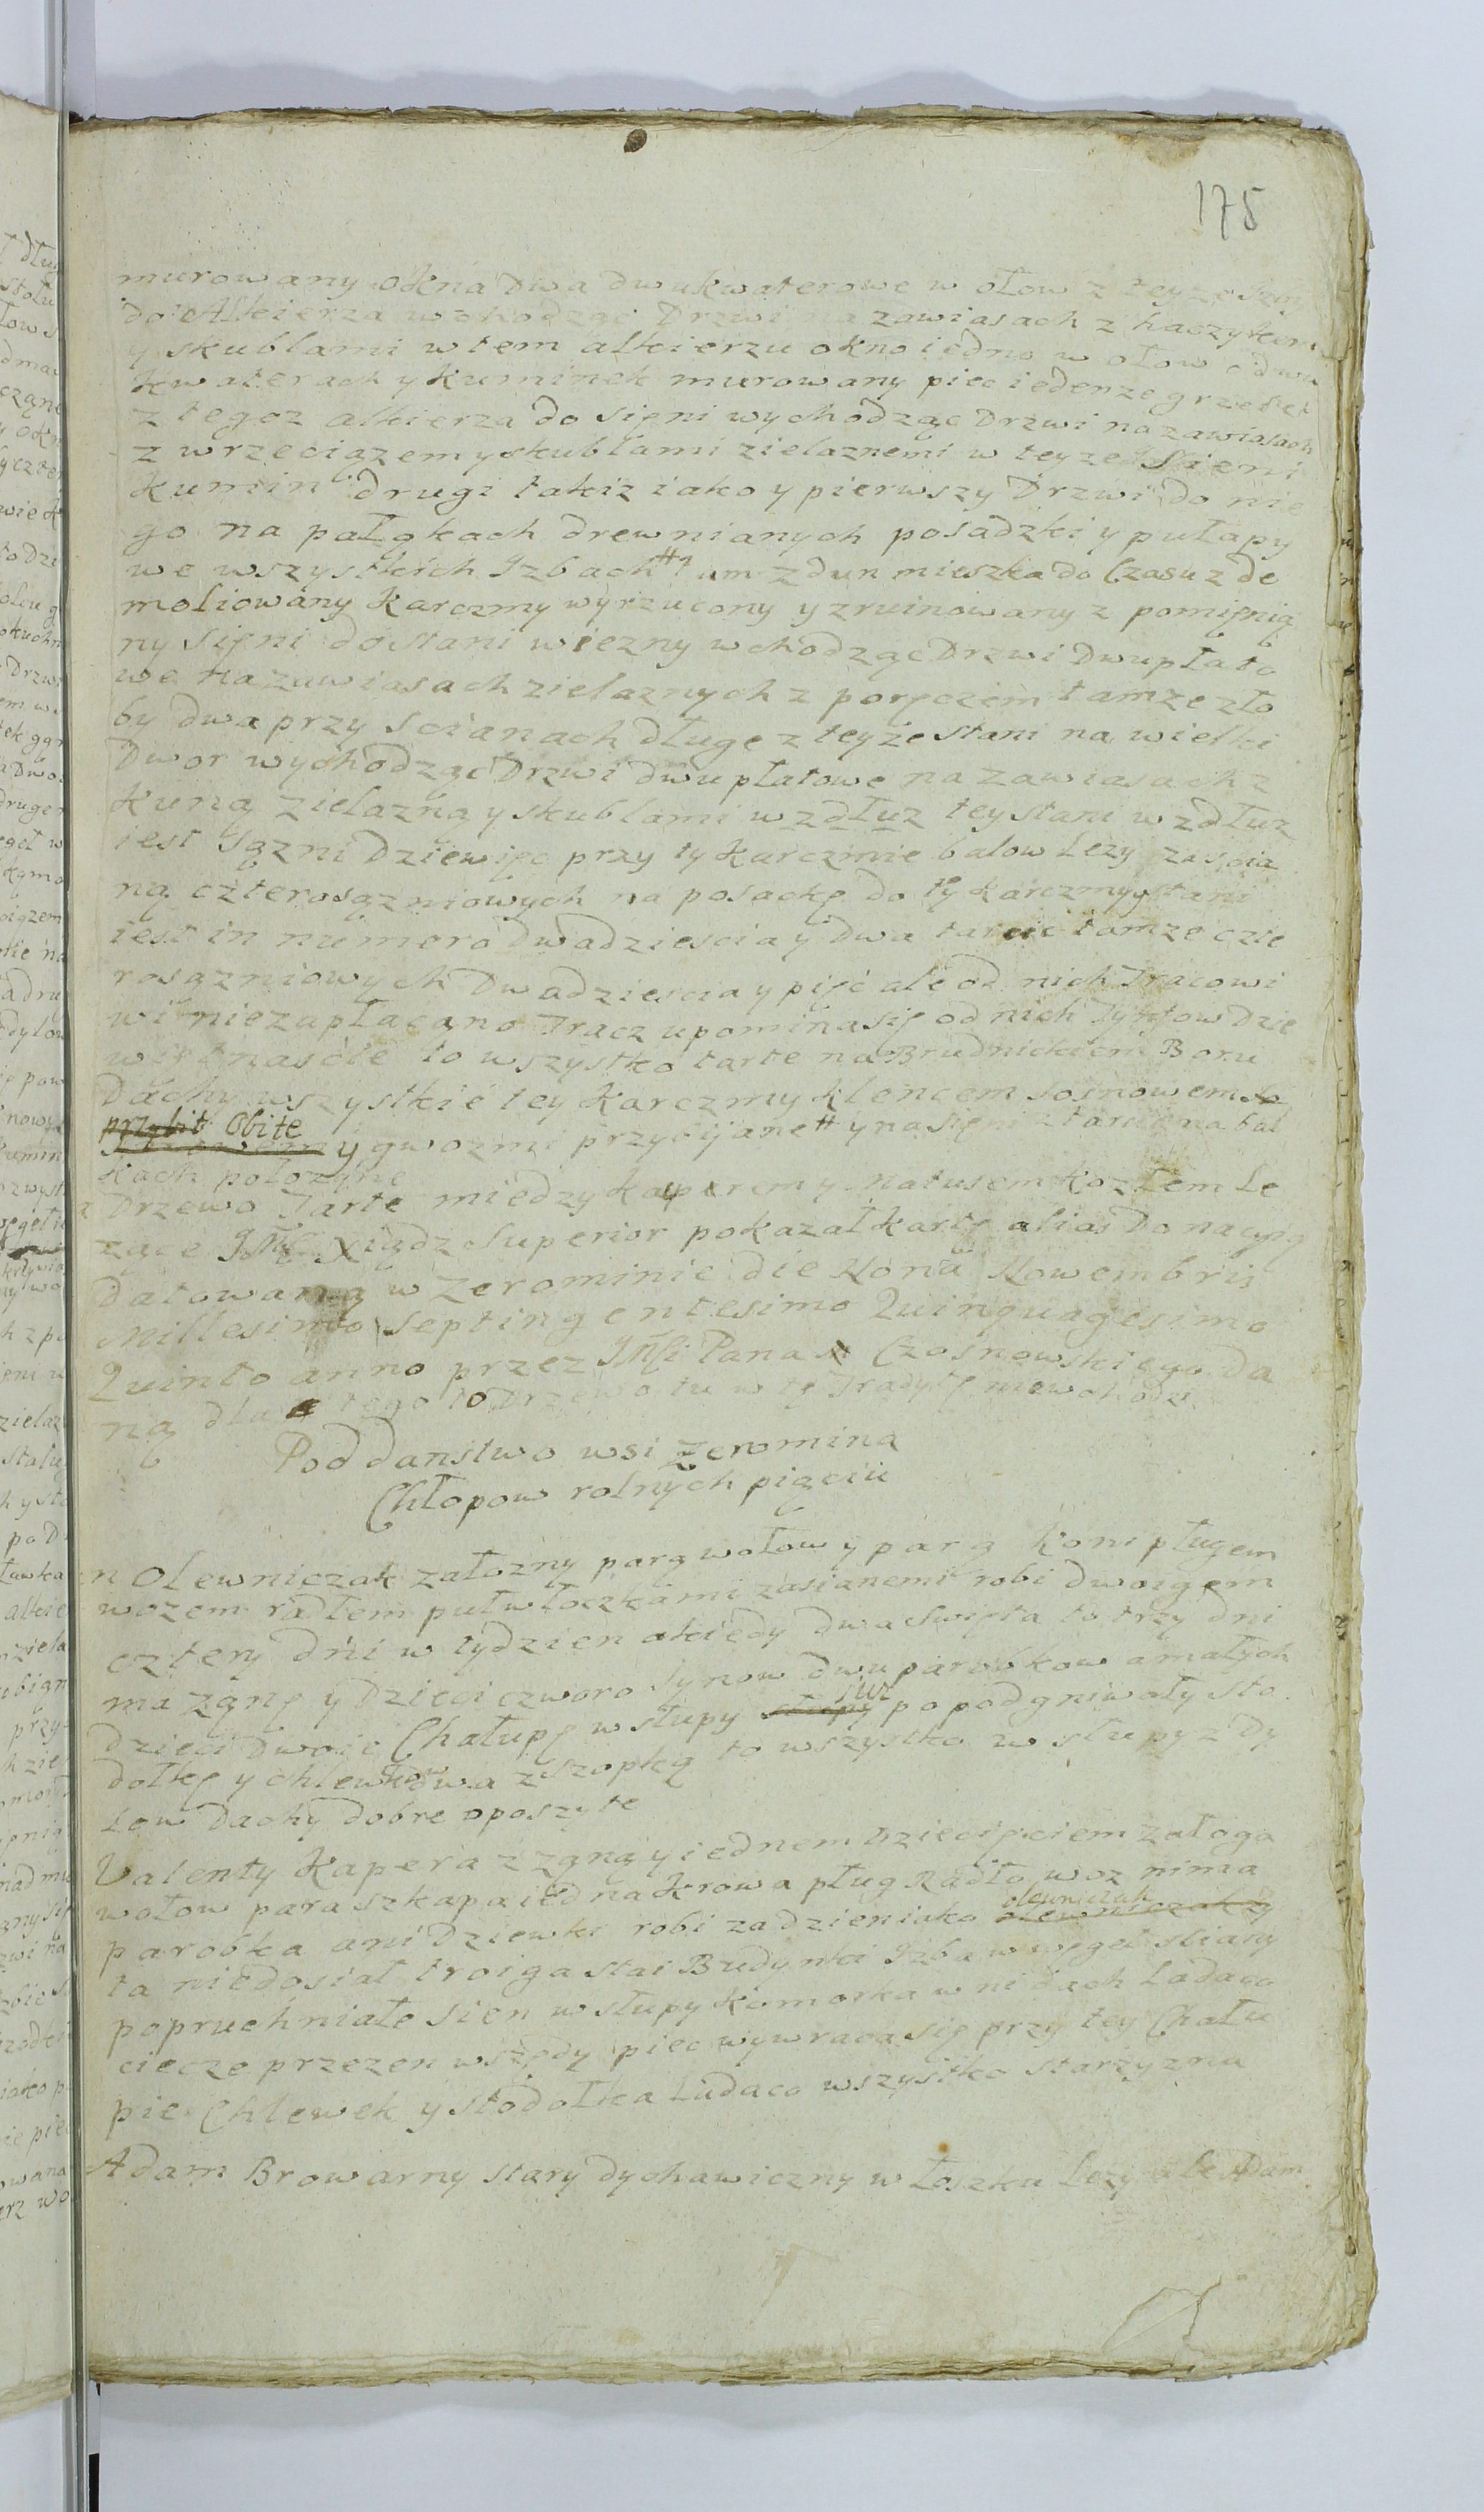 175
murowany okna Dwa dwukwaterowe w ołow z teyze
do Alkierza wchodząc Drzwi na zawiasach z haczykem
y skublami w tem alkierzu okno iedno w ołow o dwu
kwaterach y kuminek murowany piec ieden ze grzeie
z tegoz alkierza do sięni wychodząc Drzwi na zawiasach
z wrzeciązem y skublami zielaznemi w teyze Sieni
Kumin drugi takiz iako y pierwszy Drzwi do nie
go na pałąkach drewnianych posadzki y pułapy
we wszystkich Izbach # tam zdun mieszka do Czasu z de
moliowany Karczmy wyrzucony y zruinowany z pomięnią
ny sięni do stani wiezny wchodząc Drzwi Dwupłato
we na zawiasach zielaznych z poręczem tamze zło
by dwa przy scianach długę z teyze stani na wielki
Dwor wychodząc Drzwi dwupłatowe na zawiasach z
Kuną zielazną y skublami wzdłuz tey stani wzdłuz
iest Sązni Dziewięc przy ty karczmie balow Lezy za scia
ną czterosązniowych na posackę do ty karczmy y stani
iest in numero Dwadziescia y Dwa tarcic tamze czte
rosązniowych Dwadziescia y pięć ale od nich Tracowi
wi niezapłacano Tracz upomina się od nich Tynfow Dzie
więtnascie to wszystko tarte na Brudnickiem Boru
Dachy wszystkie tey Karczmy klencem sosnowem
przybit Obite
y gwozmi przybijane # y na sięni z tarcic na bal
kach połozyne
Drzewo Tarte między Kaperem y Matusem Kozłem Le
zące JMć Xiądz Superior pokazał kartę alias Donacyją
datowaną w Zerominie die Nona Nowembris
Millesimo Septingentesimo Quinquagesimo
Quinto anno przez JMści Pana Czosnowskiego Da
ną dla tego to Drzewo tu w tę Tradytę niewchodzi
Poddanstwo wsi Zeromina
Chłopow rolnych pięciu
n Olewniczak załozny parą wołow y parą koni pługiem
wozem radłem pułwłoczkami zasianemi robi dwoigem
cztery dni w tydzien a kiedy dwa Swięta to trzy dni
ma Ząnę y Dzieci czworo synow dwu parobkow a małych
dzieci Dwoie Chałupę w słupy słupy iuż popodgniwały sto
dołkę y chlewkow dwa z szopką to wszystko w słupy z dy
low dachy dobre oposzyte
Valenty Kapera z ząną y iednem Dziecięciem załoga
wołow para szkapa iedna Krowa pług Radło woz nima
parobka ani Dziewki robi zadzien iako olewniczak
ta niedosiał troiga stai Budynki Izba w węgeł sciany
popruchniałe sien w słupy komorka w ni dach Ladaco
ciecze przezen wszędy piec wywraca się przy tey Chału
pie Chlewek y stodołka Ladaco wszystko starzyzna
Adam Browarny stary dychawiczny w łoszku Lezy ale Adam